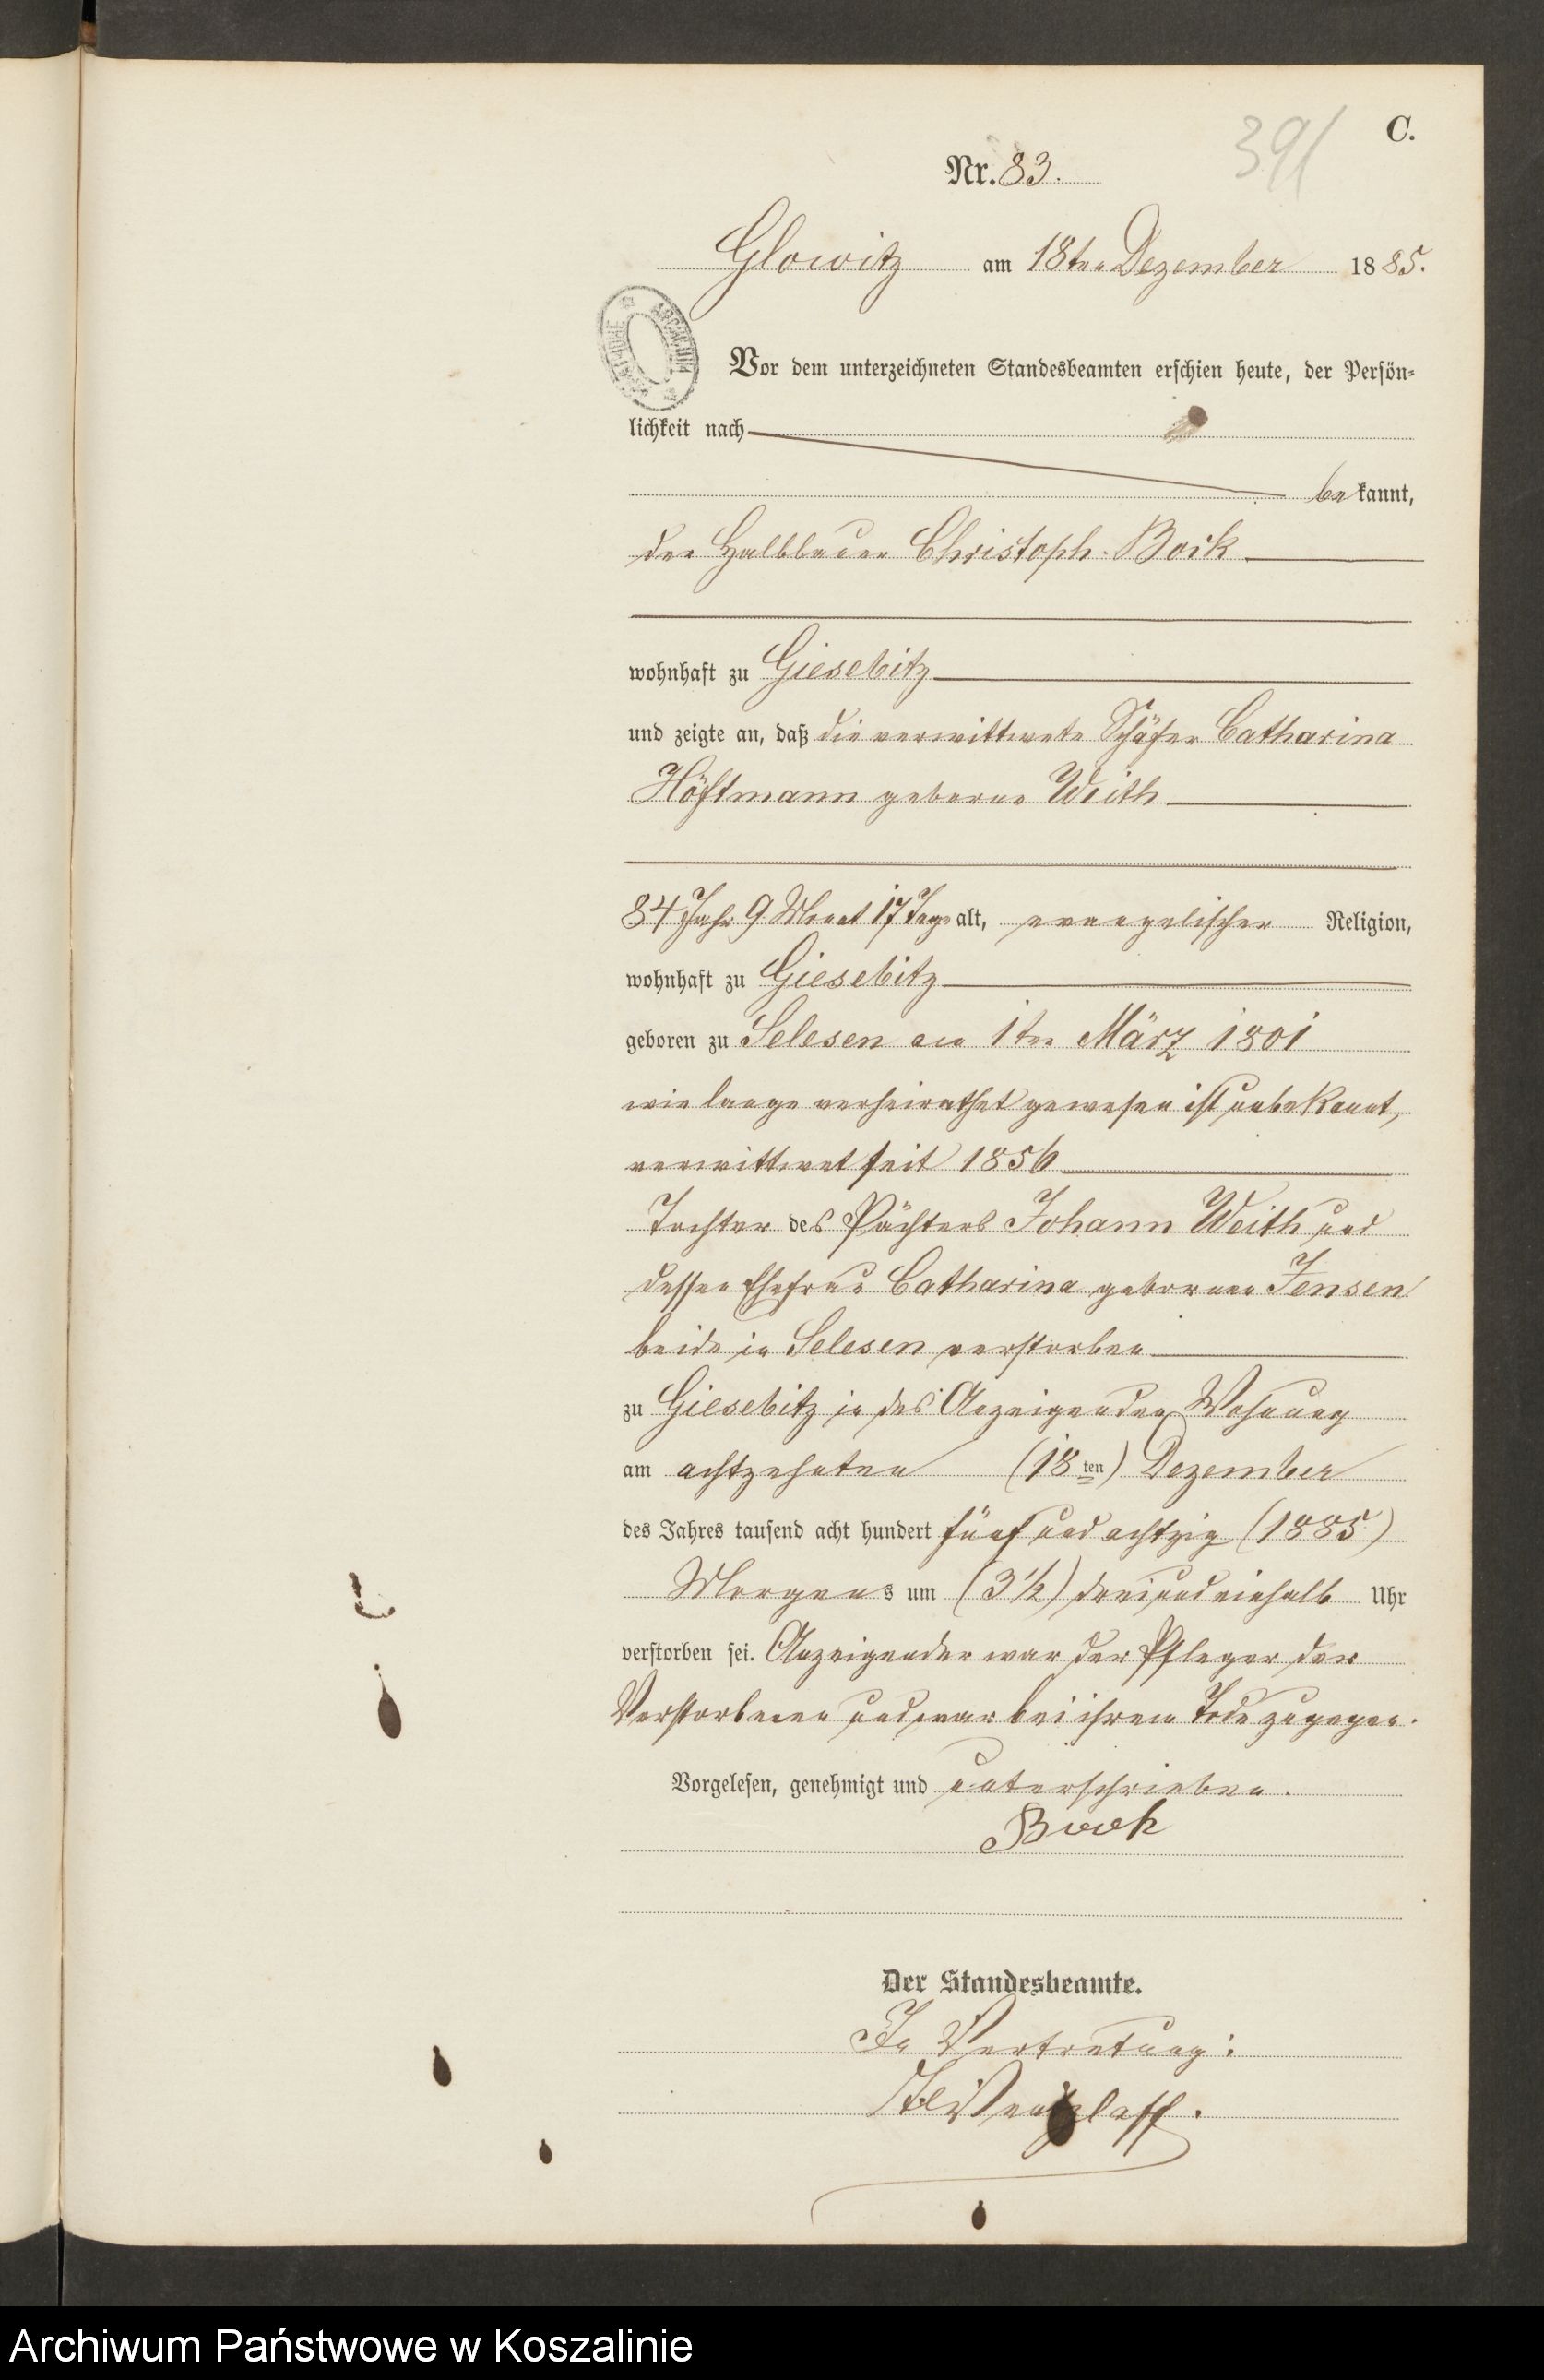 C.
391
Nr. 83.
Glowitz am 18ten Dezember 1885.
Vor dem unterzeichneten Standesbeamten erschien heute, der Persön-
lichkeit nach
bekannt,
der Halbbauer Christoph Bock
wohnhaft zu Giesebitz
und zeigte an, daß die verwittwete Schäfer Catharina
Höftmann geborne Weith
84 Jahr 9 Monat 17 Tage alt, evangelischer Religion,
wohnhaft zu Giesebitz
geboren zu Selesen am 1ten März 1801
wie lange verheirathet gewesen ist unbekannt,
verwittwet seit 1856
Tochter des Pächters Johann Weith und
dessen Ehefrau Catharina gebornen Jensen
beide in Selesen verstorben
zu Giesebitz in des Anzeigenden Wohnung
am achtzehnten (18ten) Dezember
des Jahres tausend acht hundert fünf und achtzig (1885)
Morgens um (3½) drei und einhalb Uhr
verstorben sei. Anzeigender war der Pfleger der
Verstorbenen und war bei ihrem Tode zugegen.
Vorgelesen, genehmigt und unterschrieben.
Bock
Der Standesbeamte.
In Vertretung:
Wentzlaff.
Archiwum Państwowe w Koszalinie